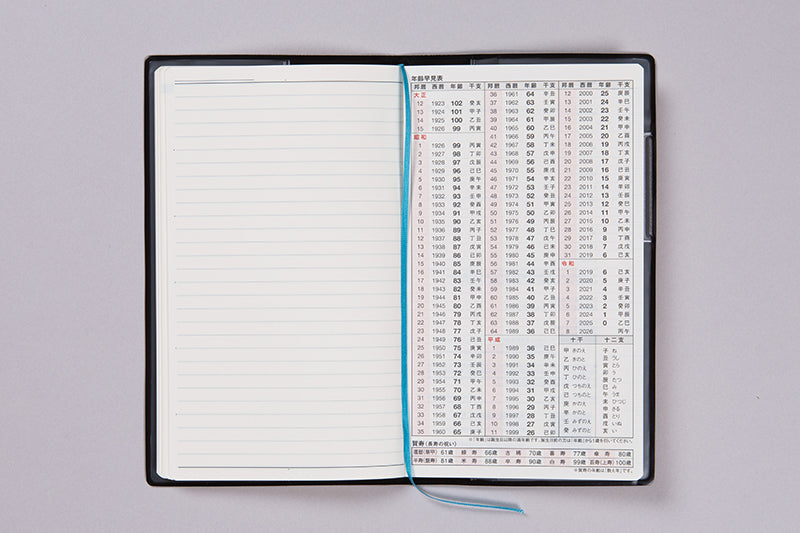 年齢早見表
邦暦 西暦 年齢 干支
大正
12 1923 102 癸亥
13 1924 101 甲子
14 1925 100 乙丑
15 1926 99 丙寅
昭和
1 1926 99 丙寅
2 1927 98 丁卯
3 1928 97 戊辰
4 1929 96 己巳
5 1930 95 庚午
6 1931 94 辛未
7 1932 93 壬申
8 1933 92 癸酉
9 1934 91 甲戌
10 1935 90 乙亥
11 1936 89 丙子
12 1937 88 丁丑
13 1938 87 戊寅
14 1939 86 己卯
15 1940 85 庚辰
16 1941 84 辛巳
17 1942 83 壬午
18 1943 82 癸未
19 1944 81 甲申
20 1945 80 乙酉
21 1946 79 丙戌
22 1947 78 丁亥
23 1948 77 戊子
24 1949 76 己丑
25 1950 75 庚寅
26 1951 74 辛卯
27 1952 73 壬辰
28 1953 72 癸巳
29 1954 71 甲午
30 1955 70 乙未
31 1956 69 丙申
32 1957 68 丁酉
33 1958 67 戊戌
34 1959 66 己亥
35 1960 65 庚子
邦暦 西暦 年齢 干支
36 1961 64 辛丑
37 1962 63 壬寅
38 1963 62 癸卯
39 1964 61 甲辰
40 1965 60 乙巳
41 1966 59 丙午
42 1967 58 丁未
43 1968 57 戊申
44 1969 56 己酉
45 1970 55 庚戌
46 1971 54 辛亥
47 1972 53 壬子
48 1973 52 癸丑
49 1974 51 甲寅
50 1975 50 乙卯
51 1976 49 丙辰
52 1977 48 丁巳
53 1978 47 戊午
54 1979 46 己未
55 1980 45 庚申
56 1981 44 辛酉
57 1982 43 壬戌
58 1983 42 癸亥
59 1984 41 甲子
60 1985 40 乙丑
61 1986 39 丙寅
62 1987 38 丁卯
63 1988 37 戊辰
64 1989 36 己巳
平成
1 1989 36 己巳
2 1990 35 庚午
3 1991 34 辛未
4 1992 33 壬申
5 1993 32 癸酉
6 1994 31 甲戌
7 1995 30 乙亥
8 1996 29 丙子
9 1997 28 丁丑
10 1998 27 戊寅
11 1999 26 己卯
邦暦 西暦 年齢 干支
12 2000 25 庚辰
13 2001 24 辛巳
14 2002 23 壬午
15 2003 22 癸未
16 2004 21 甲申
17 2005 20 乙酉
18 2006 19 丙戌
19 2007 18 丁亥
20 2008 17 戊子
21 2009 16 己丑
22 2010 15 庚寅
23 2011 14 辛卯
24 2012 13 壬辰
25 2013 12 癸巳
26 2014 11 甲午
27 2015 10 乙未
28 2016 9 丙申
29 2017 8 丁酉
30 2018 7 戊戌
31 2019 6 己亥
令和
1 2019 6 己亥
2 2020 5 庚子
3 2021 4 辛丑
4 2022 3 壬寅
5 2023 2 癸卯
6 2024 1 甲辰
7 2025 0 乙巳
8 2026 丙午
十干 十二支
甲 きのえ
乙 きのと
丙 ひのえ
丁 ひのと
戊 つちのえ
己 つちのと
庚 かのえ
辛 かのと
壬 みずのえ
癸 みずのと
子 ね
丑 うし
寅 とら
卯 う
辰 たつ
巳 み
午 うま
未 ひつじ
申 さる
酉 とり
戌 いぬ
亥 い
※「年齢」は誕生日以降の満年齢です。誕生日前の方は「年齢」から1歳を引いてください。
賀寿(長寿の祝い)
還暦(華甲) 61歳 緑寿 66歳 古稀 70歳 喜寿 77歳 傘寿 80歳
半寿(盤寿) 81歳 米寿 88歳 卒寿 90歳 白寿 99歳 百寿(上寿) 100歳
※賀寿の年齢は「数え年」です。